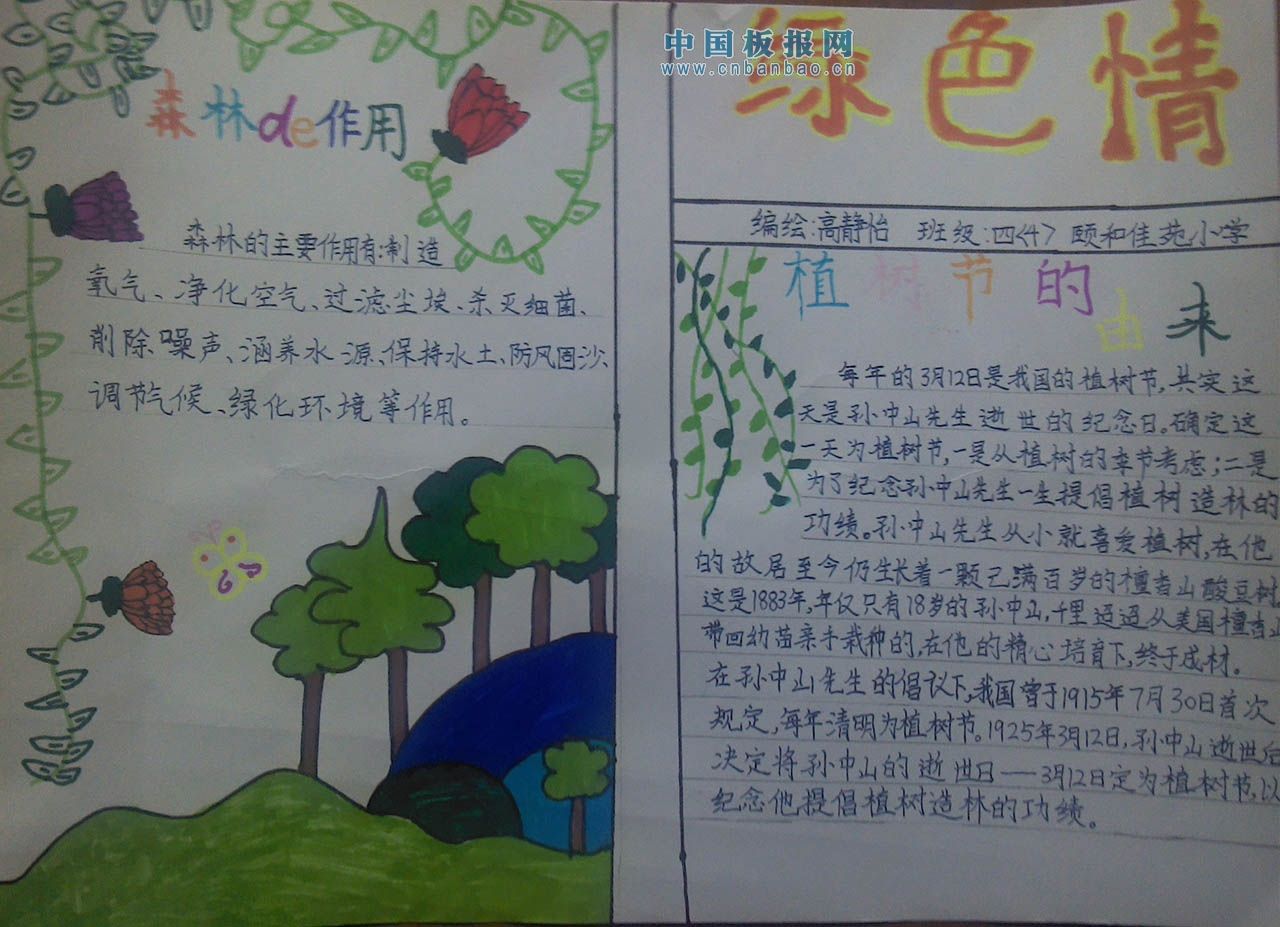 中国板报网
www.cnbanbao.cn
森林de作用
森林的主要作用有:制造
氧气、净化空气、过滤尘埃、杀灭细菌、
削除噪声、涵养水源、保持水土、防风固沙、
调节气候、绿化环境等作用。
绿色情
编绘:高静怡 班级:四<4> 颐和佳苑小学
植树节的由来
每年的3月12日是我国的植树节,其实这
天是孙中山先生逝世的纪念日。确定这
一天为植树节,一是从植树的季节考虑;二是
为了纪念孙中山先生一生提倡植树造林的
功绩。孙中山先生从小就喜爱植树,在他
的故居至今仍生长着一颗已满百岁的檀香山酸豆树
这是1883年,年仅只有18岁的孙中山,千里迢迢从美国檀香山
带回幼苗亲手栽种的,在他的精心培育下,终于成材。
在孙中山先生的倡议下,我国曾于1915年7月30日首次
规定,每年清明为植树节。1925年3月12日,孙中山逝世后
决定将孙中山的逝世日——3月12日定为植树节,以
纪念他提倡植树造林的功绩。